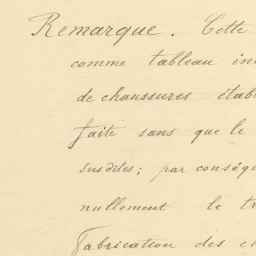 Remarque. Cette
comme tableau in
de chaussures étab
faite sans que le
susdites; par conséq
nullement le tr
fabrication des c